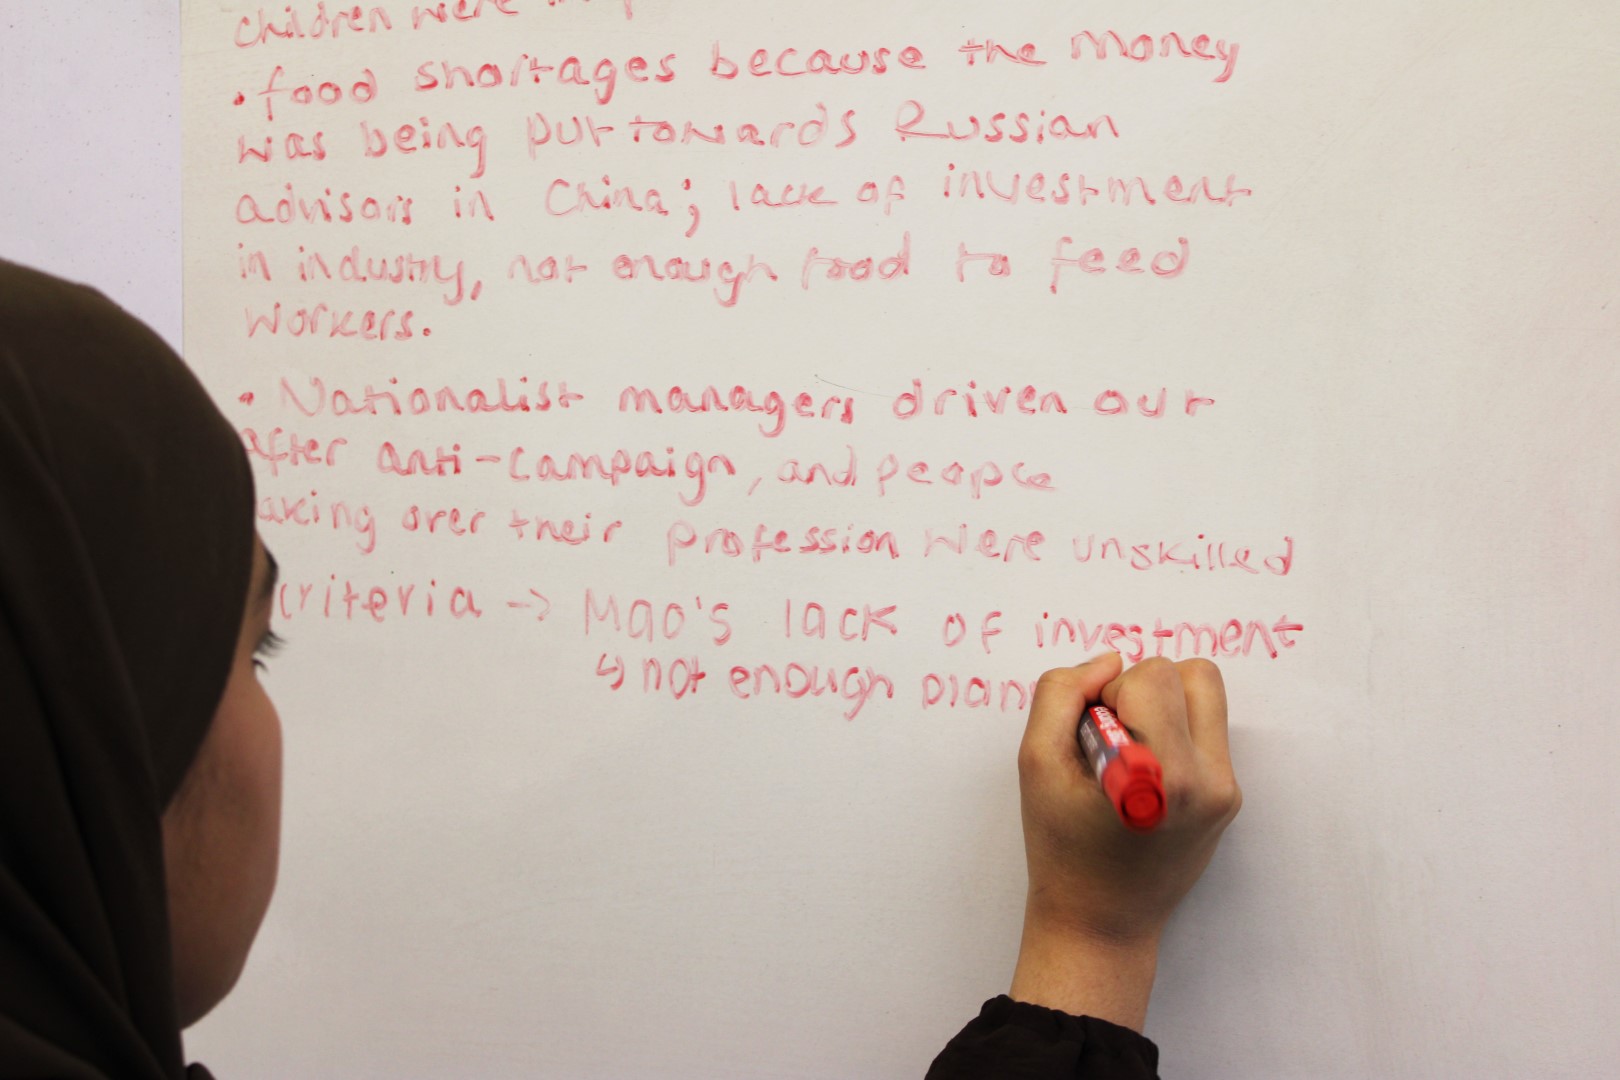 children were
• food shortages because the money
was being put towards Russian
advisors in China; lack of investment
in industry, not enough food to feed
workers.
• Nationalist managers driven out
after anti-campaign, and people
aking over their profession were unskilled
criteria -> Mao's lack of investment
↳ not enough plann